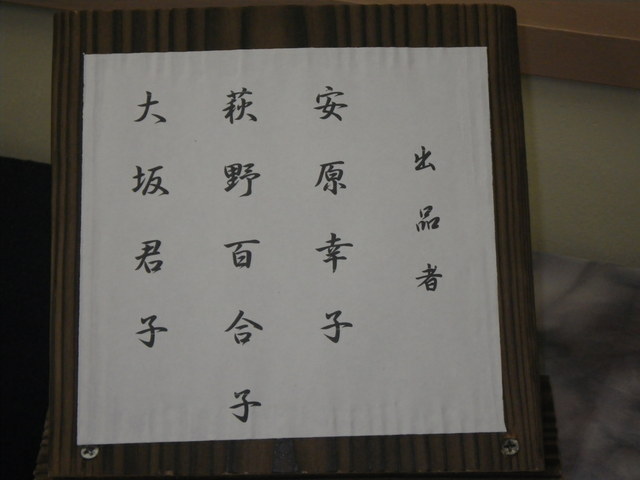 出品者
安原幸子
萩野百合子
大坂君子